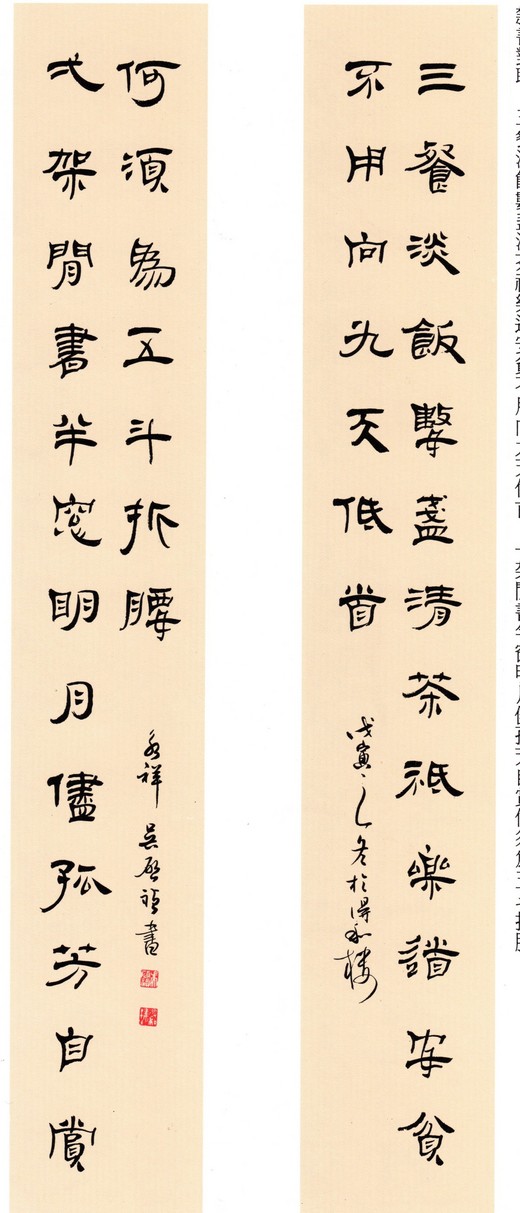 三餐淡飯數盞清茶祇樂道安貧
不用向九天低首
戊寅之冬於得和樓
弌架閒書半窓明月儘孤芳自賞
何須為五斗折腰
祥 吳啟禎書